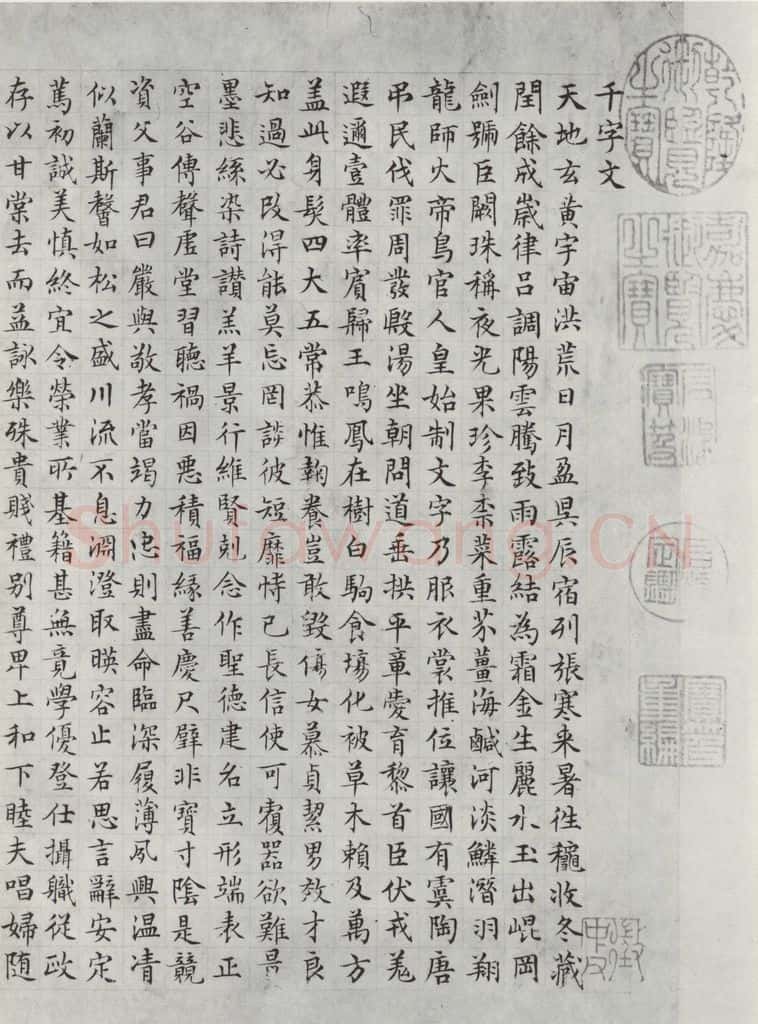 乾隆御覽之寶
嘉慶御覽之寶
石渠寶笈
石渠定鑑
寶笈重編
千字文
天地玄黄宇宙洪荒日月盈昃辰宿列張寒来暑往穐收冬藏
閏餘成嵗律呂調陽雲騰致雨露結為霜金生麗水玉出崐岡
劍號臣闕珠稱夜光果珍李柰菜重芥薑海鹹河淡鱗潛羽翔
龍師火帝鳥官人皇始制文字乃服衣裳推位讓國有虞陶唐
吊民伐罪周發殷湯坐朝問道垂拱平章愛育黎首臣伏戎羗
遐邇壹體率賓歸王鳴鳳在樹白駒食塲化被草木賴及萬方
盖此身髮四大五常恭惟鞠養豈敢毀傷女慕貞絜男效才良
知過必改得能莫忘罔談彼短靡恃己長信使可覆器欲難量
墨悲絲染詩讚羔羊景行維賢剋念作聖德建名立形端表正
空谷傳聲虛堂習聽禍因惡積福緣善慶尺璧非寶寸陰是競
資父事君曰嚴與敬孝當竭力忠則盡命臨深履薄夙興温凊
似蘭斯馨如松之盛川流不息淵澄取暎容止若思言辭安定
篤初誠美慎終宜令榮業所基籍甚無竟學優登仕攝職從政
存以甘棠去而益詠樂殊貴賤禮别尊卑上和下睦夫唱婦随
shufawang.CN